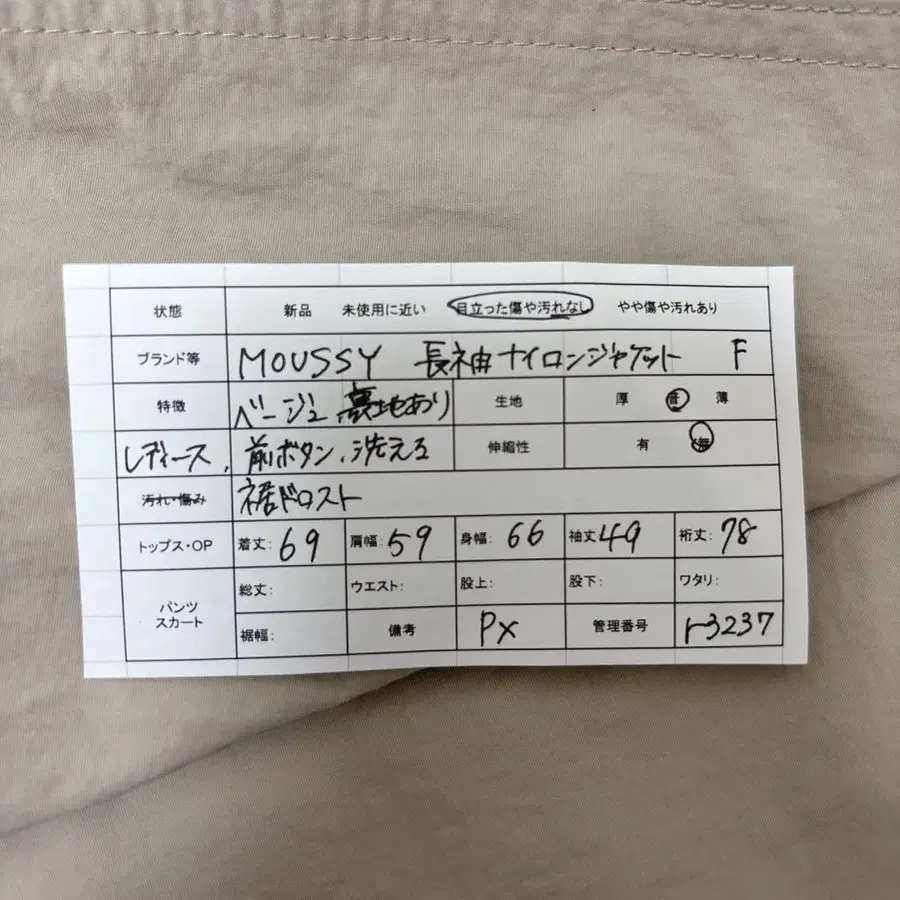 状態 新品 未使用に近い 目立った傷や汚れなし やや傷や汚れあり
ブランド等 MOUSSY 長袖ナイロンジャケット F
特徴 ベージュ 裏地あり 生地 厚 普 薄
レディース、前ボタン、洗える 伸縮性 有 無
汚れ・傷み 裾ドロスト
トップス・OP 着丈: 69 肩幅: 59 身幅: 66 袖丈 49 裄丈: 78
パンツ スカート 総丈: ウエスト: 股上: 股下: ワタリ:
裾幅: 備考 PX 管理番号 r3237